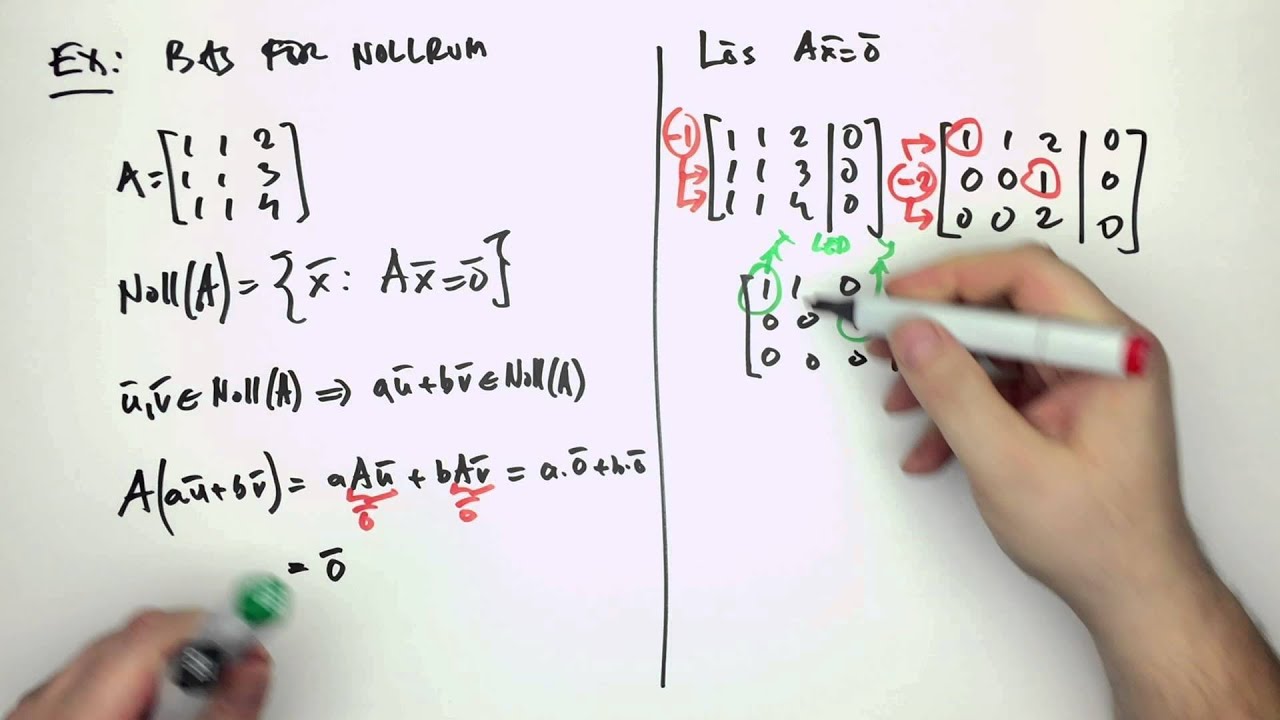 EX: BAS FÖR NOLLRUM
A = [1 1 2
1 1 3
1 1 4]
Noll(A) = { x̄ : Ax̄ = 0̄ }
ū, v̄ ∈ Noll(A) ⇒ aū + bv̄ ∈ Noll(A)
A(aū + bv̄) = aAū + bAv̄ = a·0̄ + b·0̄
0̄ 0̄
= 0̄
Lös Ax̄ = 0̄
-1 [1 1 2 | 0
1 1 3 | 0
1 1 4 | 0]
-2 [1 1 2 | 0
0 0 1 | 0
0 0 2 | 0]
LED
[1 1 0
0 0
0 0 0